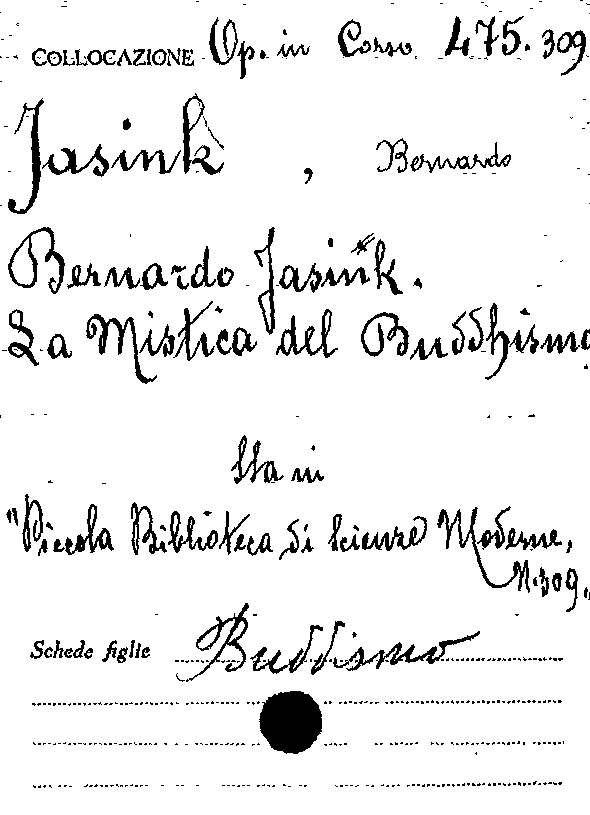 COLLOCAZIONE Op. in Corso 475.309
Jasink, Bernardo
Bernardo Jasink.
La Mistica del Buddhismo
Sta in
"Piccola Biblioteca di Scienze Moderne,
N. 309.
Schede figlie Buddismo